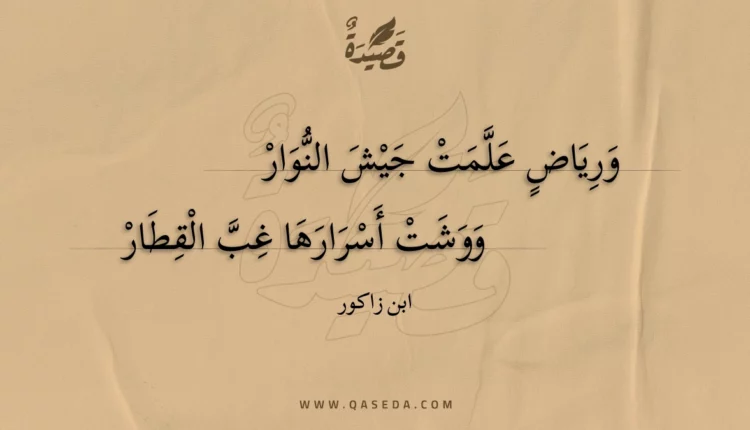 قَصِيْدَةٌ
وَرِيَاضٍ عَلَّمَتْ جَيْشَ النُّوَارْ
وَوَشَتْ أَسْرَارَهَا غِبَّ الْقِطَارْ
ابن زاكور
WWW.QASEDA.COM